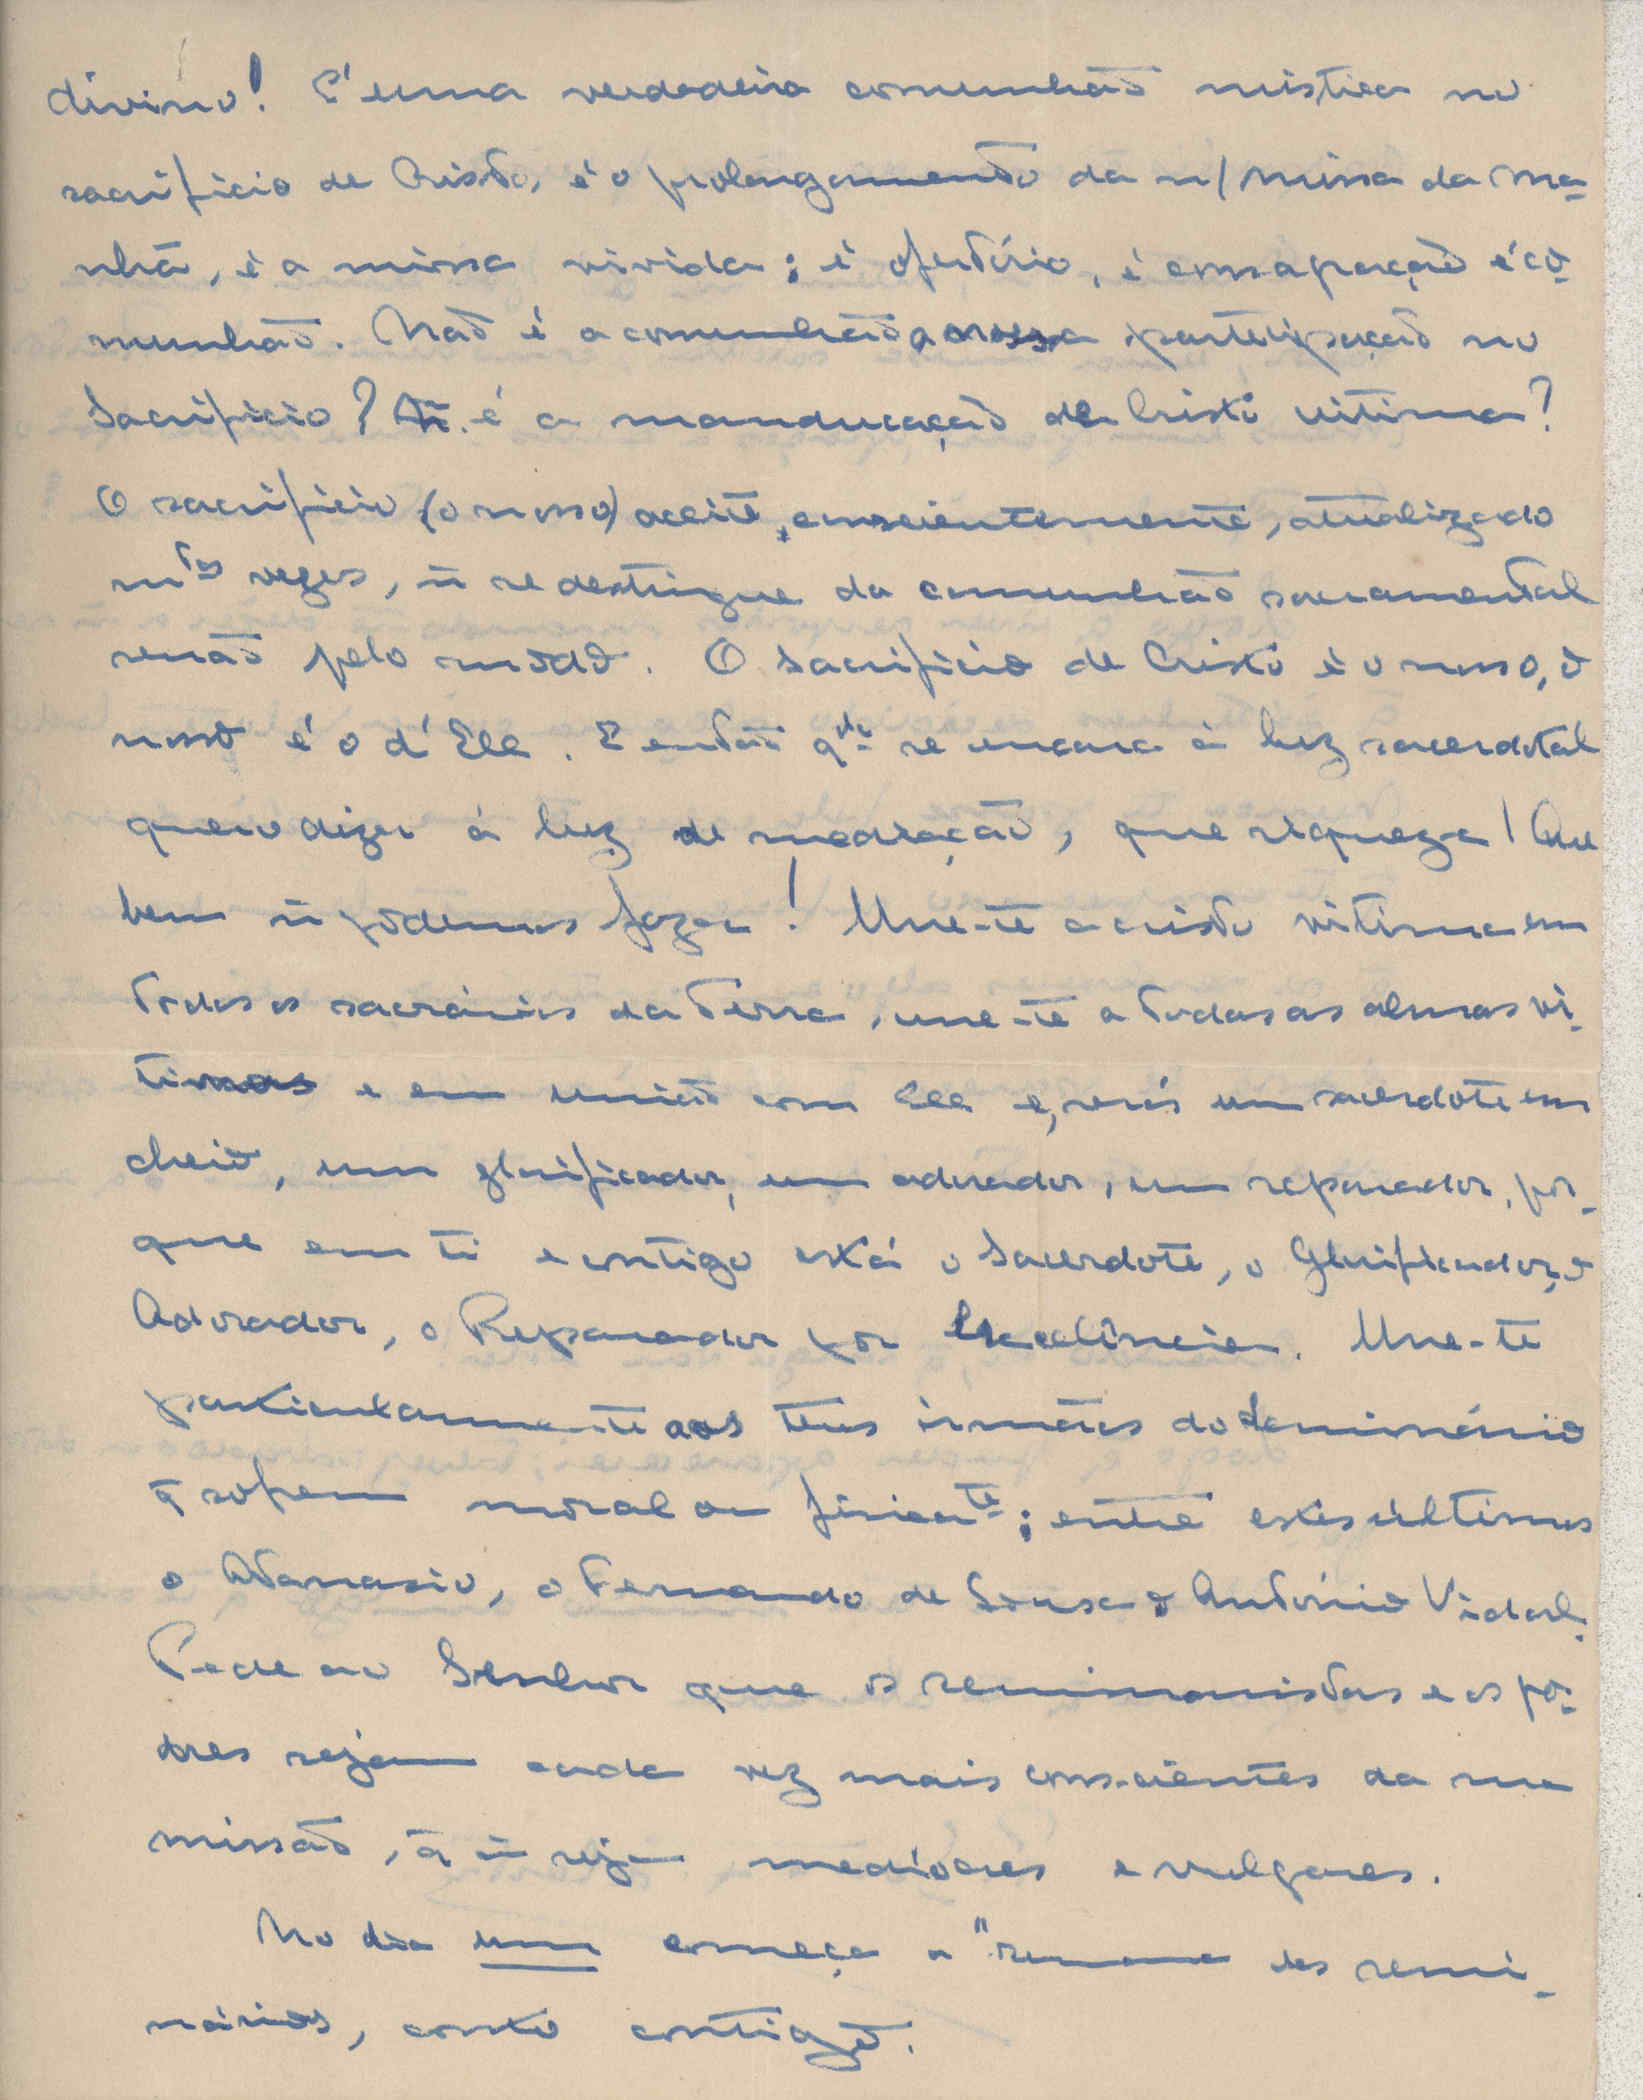 divino! É uma verdadeira comunhão mistica no
sacrificio de Cristo, é o prolongamento da n/ missa da ma-
nhã, é a missa vivida; é ofertório, é consagração é co-
munhão. Não é a comunhão a nossa participação no
Sacrificio? ñ. é a manducação de Cristo vitima?
O sacrificio (o nosso) aceite, conscientemente, atualizado
mtas vezes, ñ se destingue da comunhão sacramental
senão pelo modo. O Sacrificio de Cristo é o nosso, o
nosso é o d'Ele. E então qdo se encara á luz sacerdotal
quero dizer á luz de mediação, que riqueza! Que
bem ñ podemos fazer! Une-te a cristo vitima em
todos os sacrários da Terra, une-te a todas as almas vi-
timas e em união com Ele serás um sacerdote em
cheio, um glorificador, um adorador, um reparador, por-
que em ti e contigo está o Sacerdote, o Glorificador, o
Adorador, o Reparador por Excelência. Une-te
particularmente aos teus irmãos do Seminário
q̃ sofrem moral ou fisicate; entre estes últimos
o Atanasio, o Fernando de Sousa o António Vidal.
Pede ao Senhor que os seminaristas e os pa-
dres sejam cada vez mais conscientes da sua
missão, q̃ ñ sejam mediocres e vulgares.
No dia um começa a "semana dos semi-
nários, conto contigo.